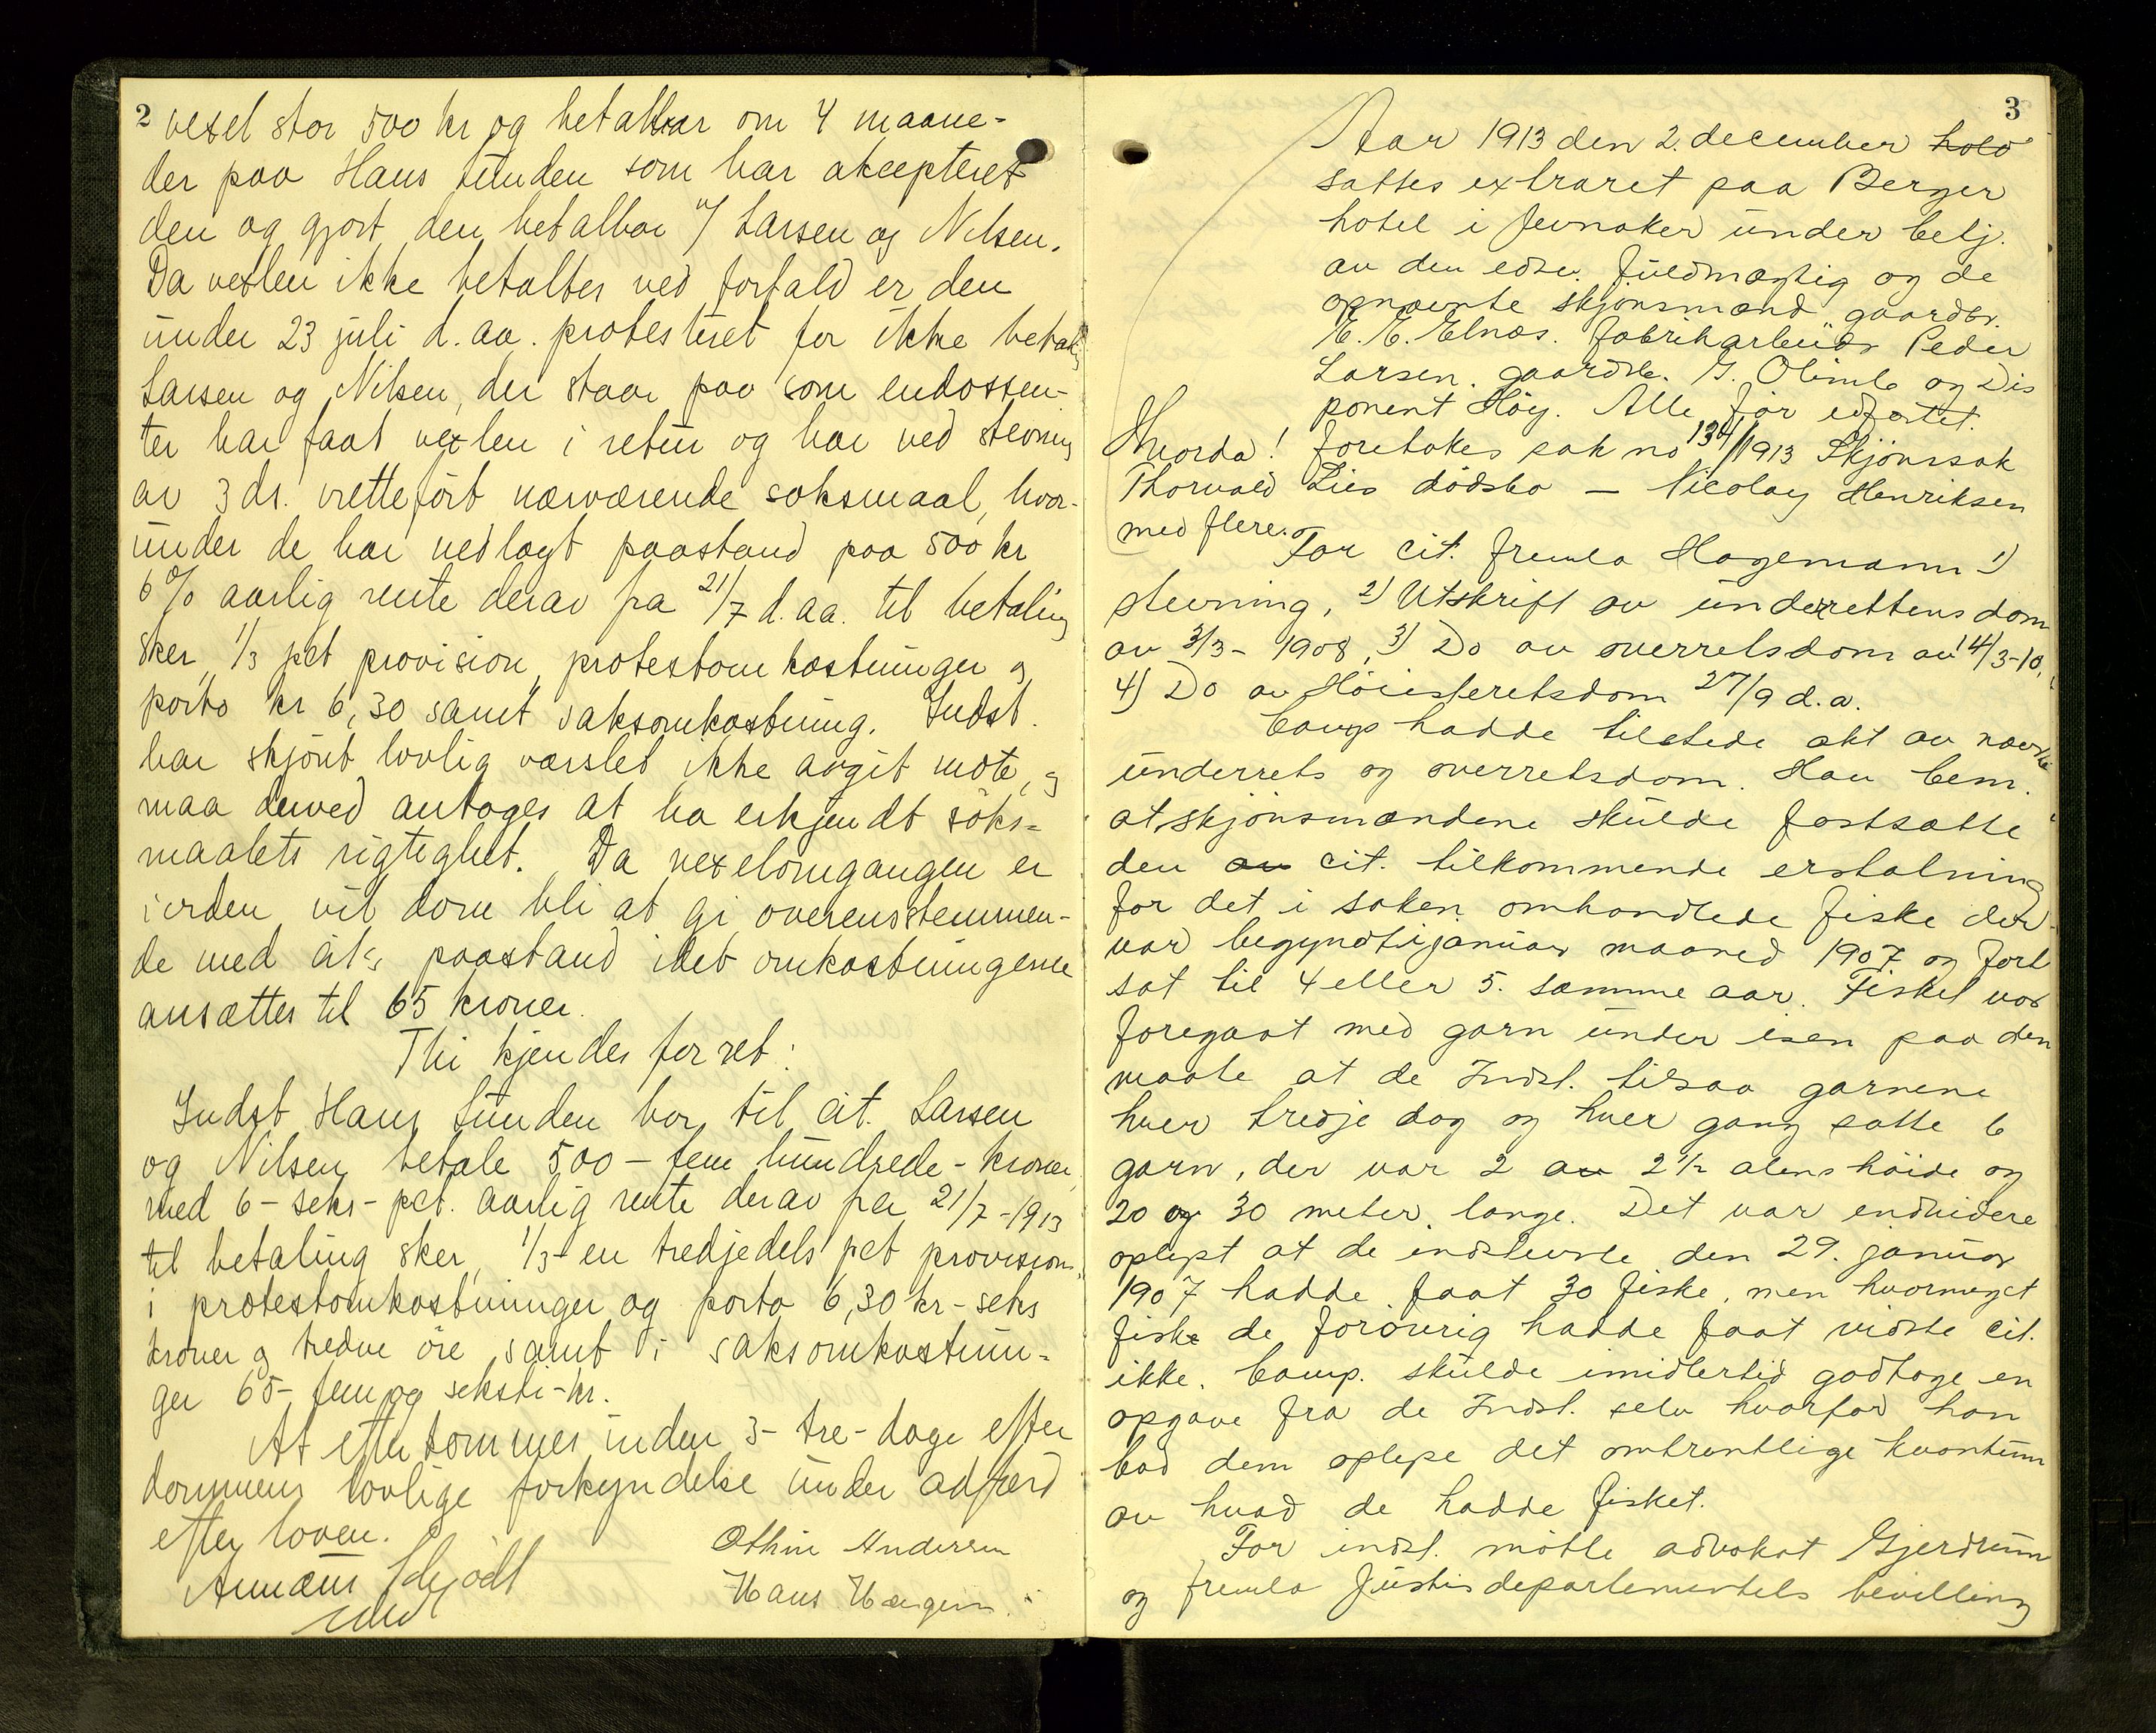 2
vexel stor 500 kr og betalbar om 4 maane-
der paa Hans Lunden som har akcepteret
den og gjort den betalbar % Larsen og Nilsen.
Da vexlen ikke betaltes ved forfald er den
under 23 juli d. aa. protesteret for ikke betal.
Larsen og Nilsen, der staar paa som endossen-
ter har faat vexlen i retur og har ved stevning
av 3 ds. retteført nærværende søksmaal, hvor-
under de har nedlagt paastand paa 500 kr
6% aarlig rente derav fra 21/7 d. aa. til betaling
sker, 1/3 pct provision, protestomkostninger og
porto kr 6,30 samt saksomkostning. Indst.
har skjønt lovlig varslet ikke avgit møte, og
maa derved antages at ha erkjendt søks-
maalets rigtighet. Da vexelomgangen er
i orden vil dom bli at gi overensstemmen-
de med cit's paastand idet omkostningerne
ansættes til 65 kroner.
Thi kjendes for ret:
Indst Hans Lunden bør til cit. Larsen
og Nilsen betale 500 - fem hundrede - kroner
med 6 - seks - pct. aarlig rente derav fra 21/7 - 1913
til betaling sker, 1/3 - en tredjedels pct provision,
i protestomkostninger og porto 6,30 kr - seks
kroner og tredve øre samt i saksomkostnin-
ger 65 - fem og seksti - kr.
At efterkommes inden 3 - tre - dage efter
dommens lovlige forkyndelse under adfærd
efter loven.
Othin Andersen
Hans Hagen
3
Aar 1913 den 2. december hold
sattes extraret paa Berger
hotel i Jevnaker under betj.
av den edsv. fuldmægtig og de
opnævnte skjønsmænd gaardbr.
E. E. Elnæs. fabrikarbeider Peder
Larsen. gaardbr. G. Olimb og Dis
ponent Høy. Alle før edfæstet.
Hvorda! foretokes sak no 134/1913 Skjønssak
Thorvald Lies dødsbo - Nicolay Henriksen
med flere.
For cit. fremla Hagemann 1)
stevning, 2) Utskrift av underrettens dom
av 3/3 - 1908, 3) Do av overretsdom av 14/3-10,
4) Do av Høiesteretsdom 27/9 d.a.
Comp hadde tilstede akt av nævnte
underrets og overretsdom. Han bem.
at skjønsmændene skulde fastsætte
den av cit. tilkommende erstatning
for det i saken omhandlede fiske der
var begyndt i januar maaned 1907 og fort
sat til 4 eller 5. samme aar. Fisket var
foregaat med garn under isen paa den
maate at de Indst. tilsaa garnene
hver tredje dag og hver gang satte 6
garn, der var 2 av 2 1/2 alens høide og
20 og 30 meter lange. Det var endvidere
oplyst at de indstevnte den 29. januar
1907 hadde faat 30 fiske, men hvormeget
fiske de forøvrig hadde faat vidste cit.
ikke. Comp. skulde imidlertid godtage en
opgave fra de Indst. selv hvorfor han
bad dem oplyse det omtrentlige kvantum
av hvad de hadde fisket.
For indst. møtte advokat Gjerdrum
og fremla Justisdepartementets bevilling